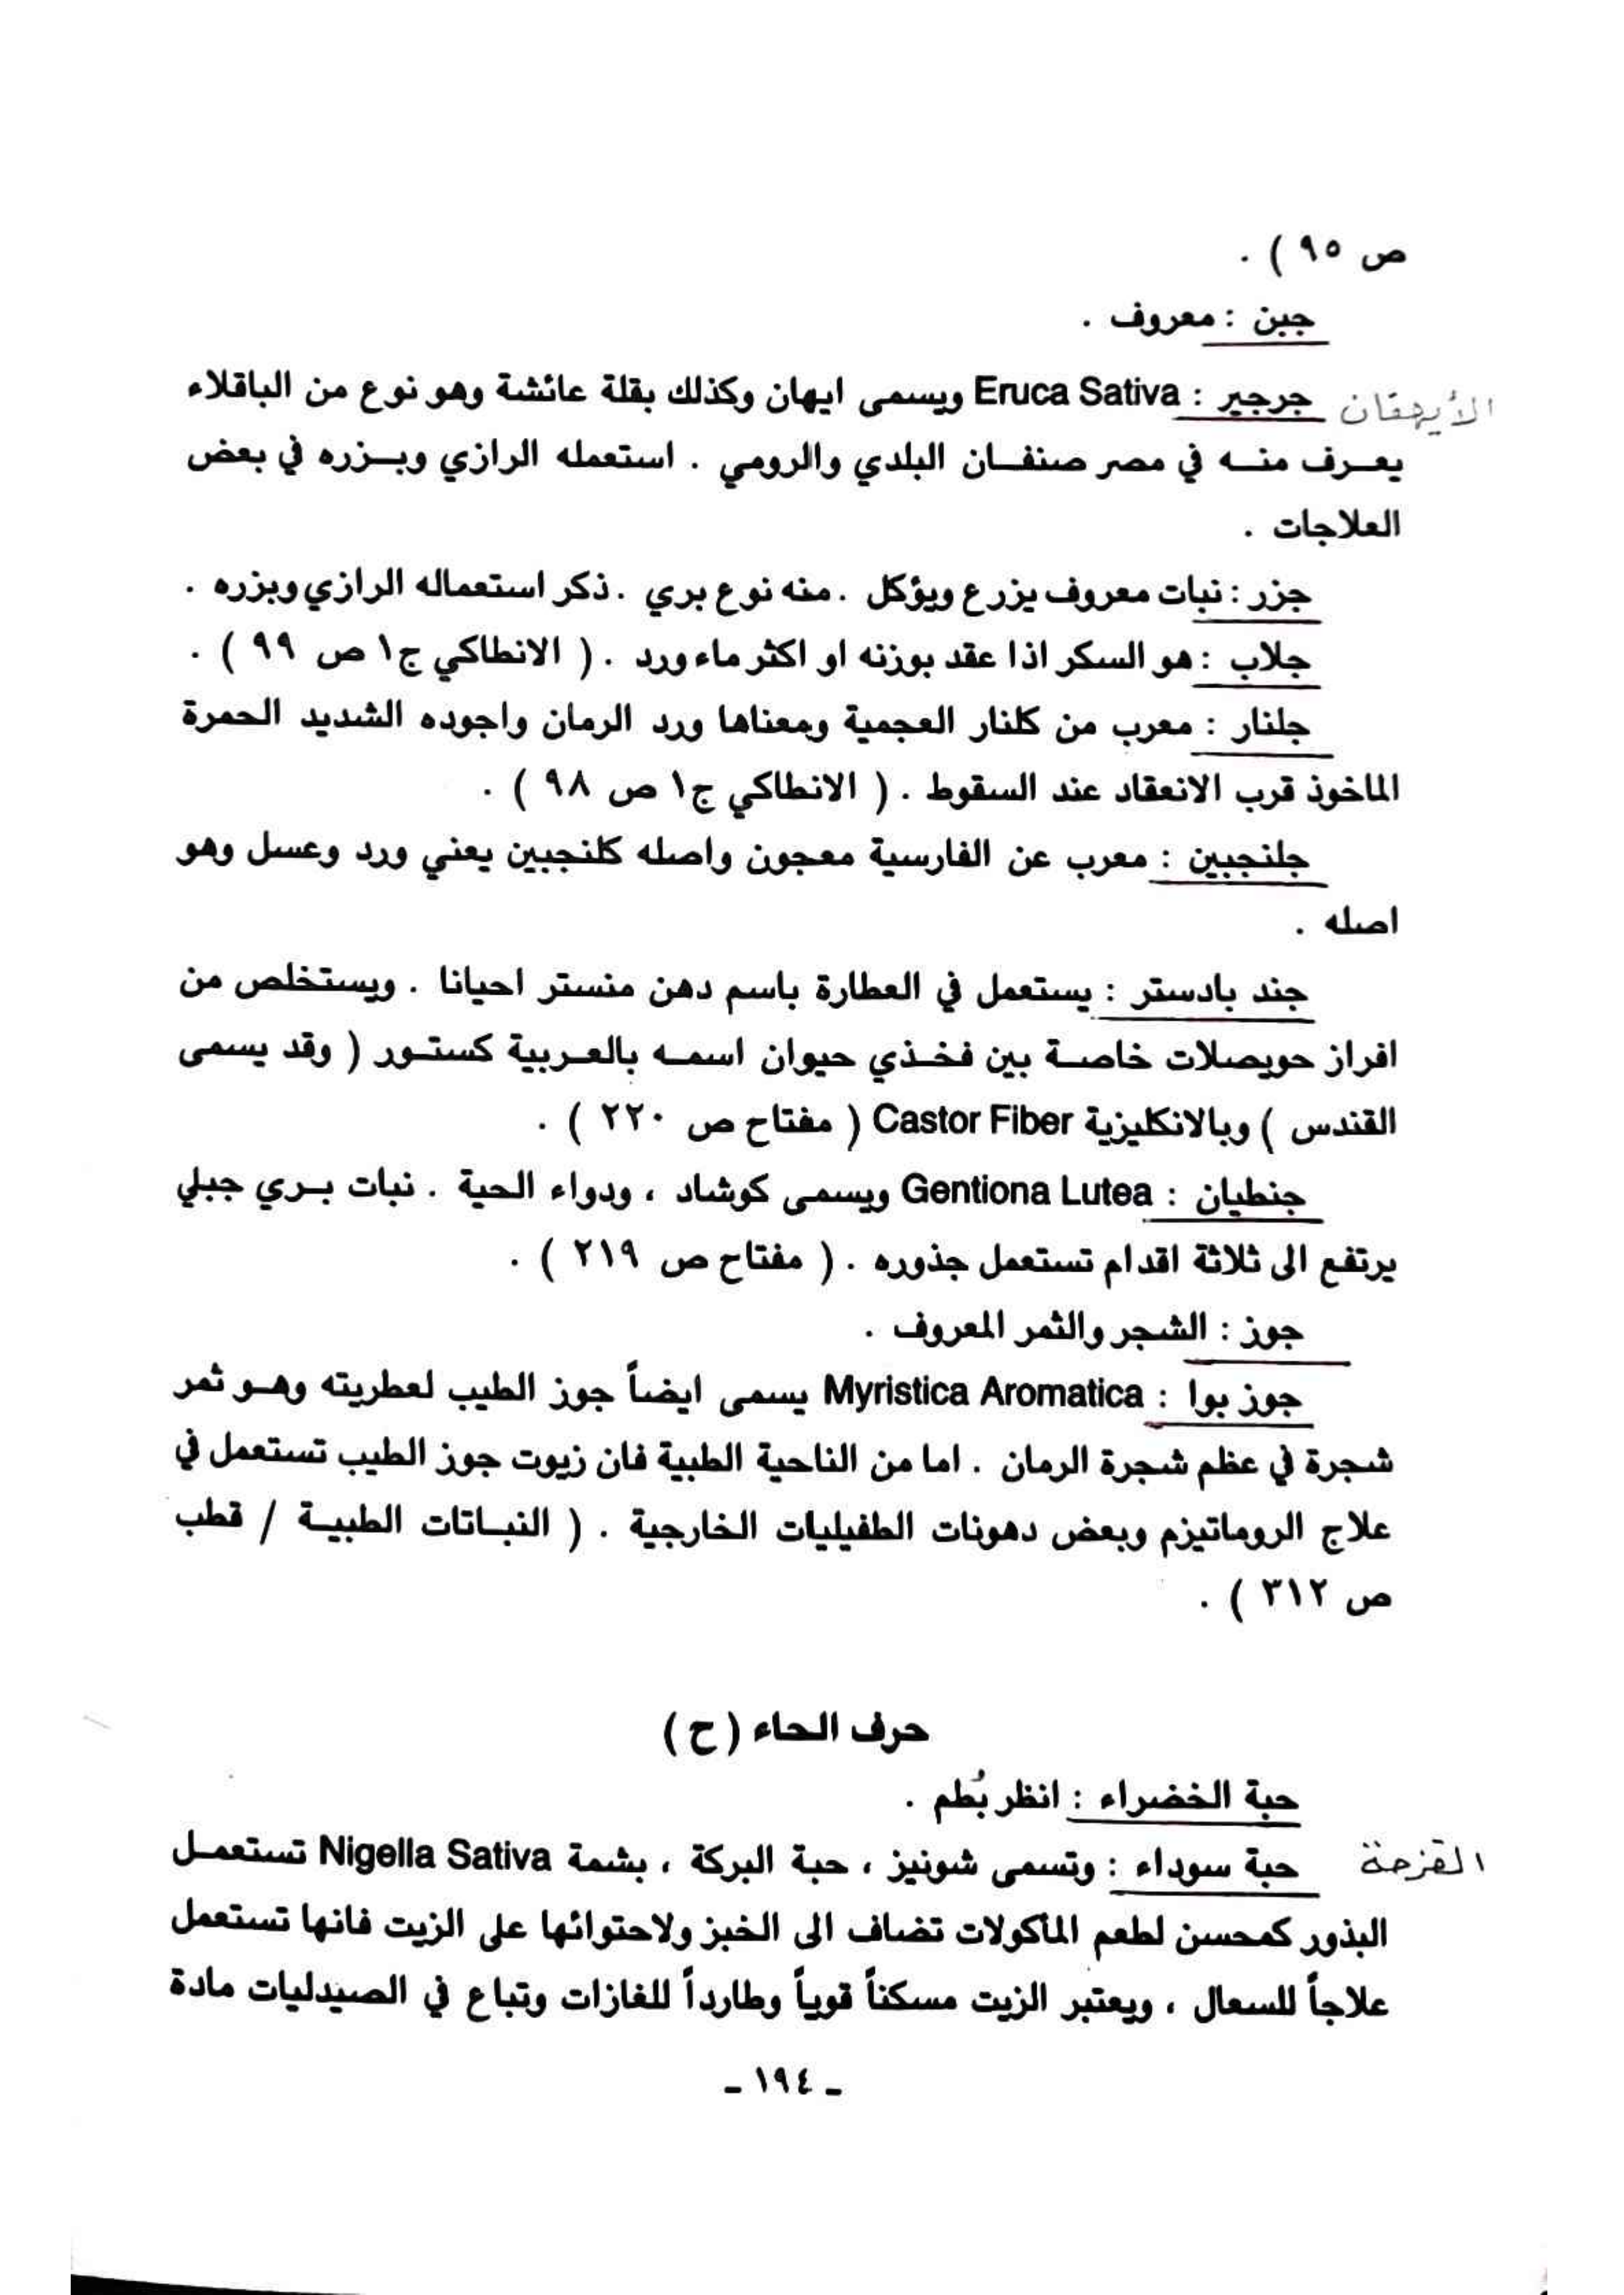 ص ٩٥ ) .
جبن : معروف .
الأيهقان جرجير : Eruca Sativa ويسمى ايهان وكذلك بقلة عائشة وهو نوع من الباقلاء
يعرف منه في مصر صنفان البلدي والرومي . استعمله الرازي وبزره في بعض
العلاجات .
جزر : نبات معروف يزرع ويؤكل . منه نوع بري . ذكر استعماله الرازي وبزره .
جلاب : هو السكر اذا عقد بوزنه او اكثر ماء ورد . ( الانطاكي ج١ ص ٩٩ ) .
جلنار : معرب من كلنار العجمية ومعناها ورد الرمان واجوده الشديد الحمرة
الماخوذ قرب الانعقاد عند السقوط . ( الانطاكي ج١ ص ٩٨ ) .
جلنجبين : معرب عن الفارسية معجون واصله كلنجبين يعني ورد وعسل وهو
اصله .
جند بادستر : يستعمل في العطارة باسم دهن منستر احيانا . ويستخلص من
افراز حويصلات خاصة بين فخذي حيوان اسمه بالعربية كستور ( وقد يسمى
القندس ) وبالانكليزية Castor Fiber ( مفتاح ص ٢٢٠ ) .
جنطيان : Gentiona Lutea ويسمى كوشاد ، ودواء الحية . نبات بري جبلي
يرتفع الى ثلاثة اقدام تستعمل جذوره . ( مفتاح ص ٢١٩ ) .
جوز : الشجر والثمر المعروف .
جوز بوا : Myristica Aromatica يسمى ايضاً جوز الطيب لعطريته وهو ثمر
شجرة في عظم شجرة الرمان . اما من الناحية الطبية فان زيوت جوز الطيب تستعمل في
علاج الروماتيزم وبعض دهونات الطفيليات الخارجية . ( النباتات الطبية / قطب
ص ٣١٢ ) .
حرف الحاء ( ح )
حبة الخضراء : انظر بُطم .
القزحة حبة سوداء : وتسمى شونيز ، حبة البركة ، بشمة Nigella Sativa تستعمل
البذور كمحسن لطعم المأكولات تضاف الى الخبز ولاحتوائها على الزيت فانها تستعمل
علاجاً للسعال ، ويعتبر الزيت مسكناً قوياً وطارداً للغازات وتباع في الصيدليات مادة
- ١٩٤ -